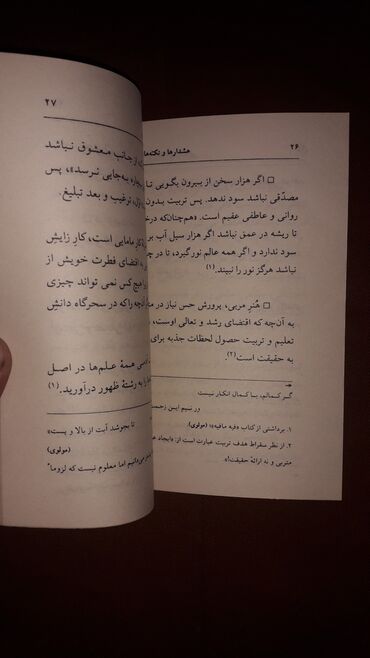 ۲۶
هشدارها و نکته‌ها
□ اگر هزار سخن از بیرون بگویی تا
مصدّقی نباشد سود ندهد. پس تربیت بدون
روانی و عاطفی عقیم است. «هم‌چنان‌که
تا ریشه در عمق نباشد اگر هزار سیل آب بر
سود ندارد و اگر همه عالم نور گیرد، تا در
نباشد هرگز نور را نبیند.(۱)
□ هُنر مربی، پرورش حس نیاز در
به آن‌چه که اقتضای رشد و تعالی اوست،
تعلیم و تربیت حصول لحظات جذبه برای
به حقیقت است(۲).
گر کمالم، با کمال انکار نیست
ور نیم این
۱. برداشتی از کتاب «فیه مافیه»؛ (مولوی)
۲. از نظر سقراط هدف تربیت عبارت است از: «ایجاد
متربی و نه ارائهٔ حقیقت!».
۲۷
از جانب معشوق نباشد
به‌جایی نرسد»، پس
ترغیب و بعد تبلیغ.
کار مامایی است، کار زایش
به اقتضای فطرت خویش از
هیچ کس نمی تواند چیزی
را که در سحرگاه دانش
همهٔ علم‌ها در اصل
را به رشتهٔ ظهور درآورید.(۱)
تا بجوشد آبت از بالا و پست»
(مولوی)
می‌دانیم اما معلوم نیست که لزوما